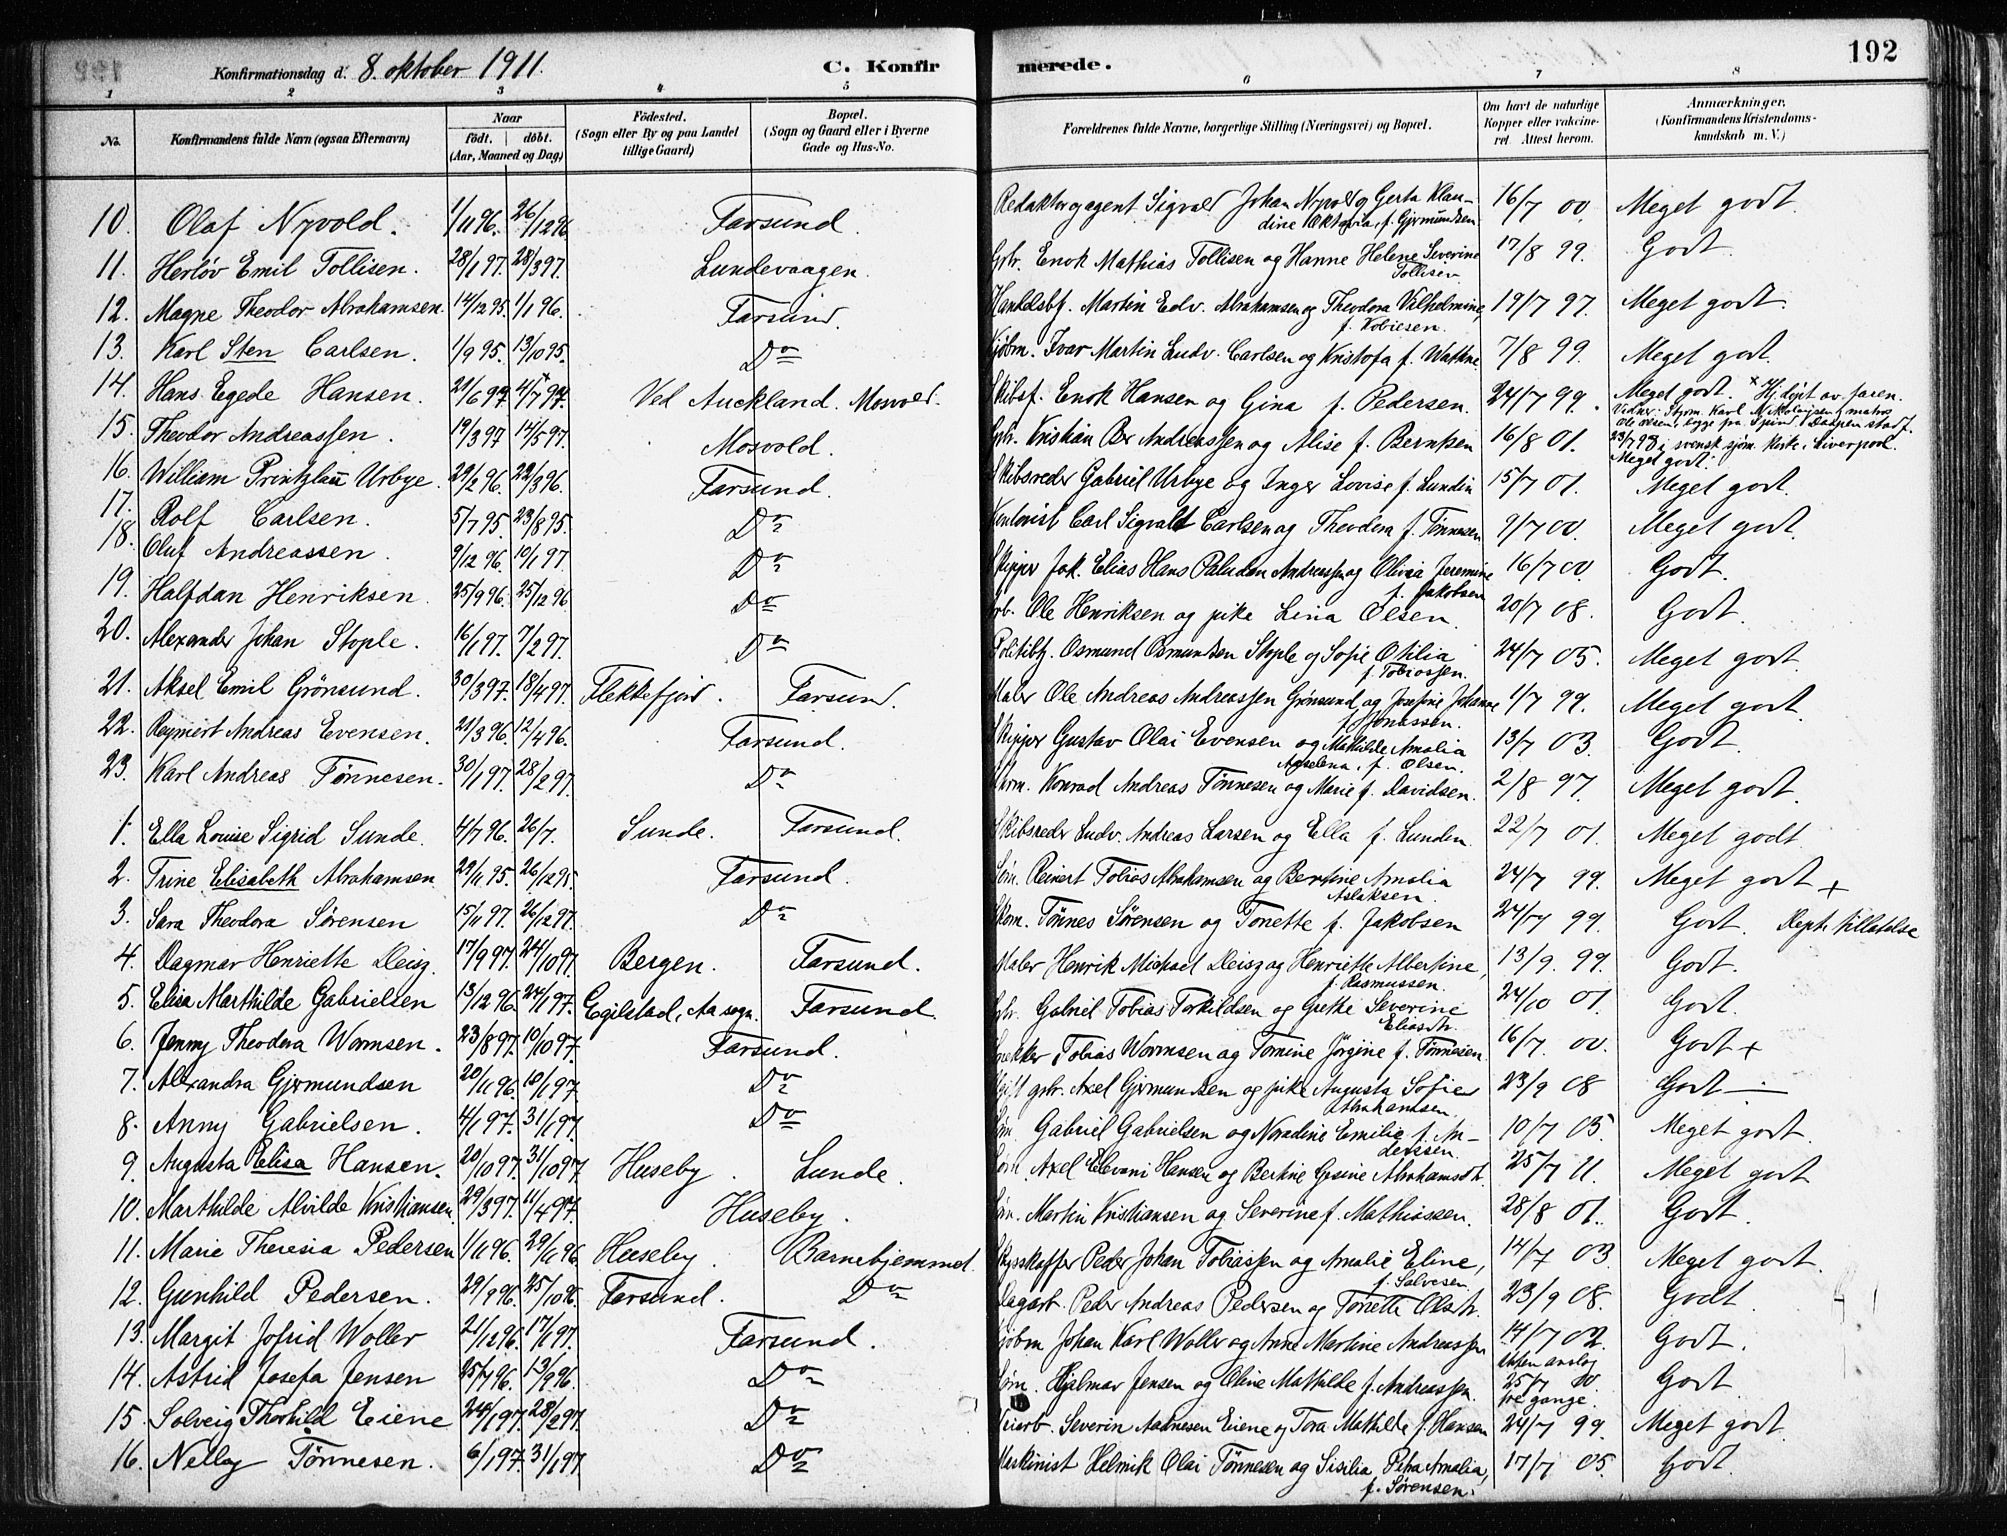 Konfirmationsdag d. 8. oktober 1911.
C. Konfirmerede.
192
1 2 3 4 5 6 7 8
No. Konfirmandens fulde Navn (ogsaa Efternavn) Naar födt. döbt. (Aar, Maaned og Dag) Födested. (Sogn eller By og paa Landet tillige Gaard) Bopæl. (Sogn og Gaard eller i Byerne Gade og Hus-No. Forældrenes fulde Navne, borgerlige Stilling (Næringsvei) og Bopæl. Om havt de naturlige Kopper eller vakcineret Attest herom. Anmærkninger, (Konfirmandens Kristendomskundskab m. V.)
10. Olaf Nyvold. 1/11 96. 26/12 96 Farsund. Redaktör og agent Sigvald Johan Nyvold og Gerta Klaudine Oktavia, f. Gjermundsen 16/7 00. Meget godt.
11. Herlöv Emil Tollisen. 28/1 97. 28/3 97. Lundevaagen. Gbr. Enok Mathias Tollisen og Hanne Helene Severine Tollisen 17/8 99. Godt.
12. Magne Theodor Abrahamsen. 14/12 95. 1/1 96. Farsund. Handelsbf. Martin Edv. Abrahamsen og Theodora Vilhelmine, f. Tobiesen. 19/7 97. Meget godt.
13. Karl Sten Carlsen. 1/9 95. 13/10 95. Do Kjöbm. Ivar Martin Ludv. Carlsen og Kristofa f. Watne 7/8 99. Meget godt.
14. Hans Egede Hansen. 21/6 97. 4/7 97. x Ved Auckland. Mosvold. Skibsf. Enok Hansen og Gina f. Pedersen. 24/7 99. Meget godt. x Hj.döpt av faren.
Vidner: Styrm. Karl Nikolaisen, matros
15. Theodor Andreassen. 19/3 97 14/5 97. Mosvold. Gbr. Kristian Andreassen og Alise f. Berntsen 16/8 01. 23/7 98 i svensk sjöm. kirke i Liverpool. Meget godt.
16. William Printzlau Urbye. 29/2 96. 22/3 96. Farsund. Skibsreder Gabriel Urbye og Inger Lovise f. Lundin 15/7 01. Meget godt.
17. Rolf Carlsen. 5/7 95. 23/8 95. Do Carl Sigvalt Carlsen og Theodora f. Tönnesen 9/7 00. Meget godt.
18. Oluf Andreassen. 9/12 96. 10/1 97. Do Skipper Jak. Elias Hans Paludan Andreassen og Olivia Jeremine f. Jakobsen 16/7 00. Godt.
19. Halfdan Henriksen. 25/9 96. 25/12 96 Do Arb. Ole Henriksen og pike Lina Olsen. 20/7 08. Godt.
20. Alexander Johan Stople. 16/1 97. 7/2 97. Do Politibtj. Osmund Osmundsen Stople og Sofie Otilia f. Tobiassen. 24/7 05. Meget godt.
21. Aksel Emil Grönsund. 30/3 97. 18/4 97. Flekkefjord. Farsund. Maler Ole Andreas Andreassen Grönsund og Josefine Johanne f. Jonassen. 1/7 99. Meget godt.
22. Reymert Andreas Evensen. 21/3 96. 12/4 96. Farsund. Skipper Gustav Olai Evensen og Mathilde Amalia Anselena, f. Olsen. 13/7 03. Godt.
23. Karl Andreas Tönnesen. 30/1 97. 28/2 97. Do Konrad Andreas Tönnesen og Marie f. Davidsen. 2/8 97. Meget godt.
1. Ella Louise Sigrid Sunde. 4/7 96. 26/7. Sunde. Farsund. Skibsreder Ludv. Andreas Larsen og Ella f. Lunden. 22/7 01. Meget godt
2. Trine Elisabeth Abrahamsen 29/11 95. 26/12 95. Farsund. Söm. Reinert Tobias Abrahamsen og Bertine Amalia Aslaksen. 24/7 99. Meget godt +
3. Sara Theodora Sörensen 15/11 97. 26/12 97. Do Skom. Tönnes Sörensen og Tonette f. Jakobsen 24/7 99. Godt. Dept. tillatelse
4. Dagmar Henriette Deisz. 17/9 97. 24/10 97. Bergen. Farsund. Maler Henrik Michael Deisz og Henriette Albertine, f. Rasmussen. 13/9. 99. Godt.
5. Elisa Marthilde Gabrielsen 13/12 96. 24/1 97. Egilstad, Aa sogn. Farsund. Gbr. Gabriel Tobias Torkildsen og Grethe Severine Eliasdtr. 24/10 01. Godt.
6. Jenny Theodora Wormsen. 23/8 97. 10/10 97. Farsund. Snekker Tobias Wormsen og Tomine Jörgine f. Tönnesen. 16/7. 00. Godt +
7. Alexandra Gjermundsen 20/11 96. 10/1 97. Do Gift gbr. Axel Gjermundsen og pike Augusta Sofie Abrahamsen. 23/9 08 Godt —
8. Anny Gabrielsen. 4/1 97. 31/1 97. Do Söm. Gabriel Gabrielsen og Noradine Emilie f. Anderssen. 10/7 05. Meget godt.
9. Augusta Elisa Hansen. 20/10 97. 31/10 97. Huseby. Lunde. Söm. Axel Elevani Hansen og Bertine Gesine Abrahamsdtr. 25/7 11. Meget godt
10. Marthilde Alvilde Kristiansen. 29/3 97. 11/4 97. Huseby. Söm. Martin Kristiansen og Severine f. Mathiassen. 28/8 01. Godt.
11. Marie Theresia Pedersen 1/11 96. 29/11 96. Huseby. Barnehjemmet. Skysskaffer Peder Johan Tobiassen og Amalie Eline, f. Salvesen 14/7 03. Meget godt.
12. Gunhild Pedersen. 29/9 96. 25/10 96. Farsund. Do Dagarb. Peder Andreas Pedersen og Tonette Olsdtr. 23/9 08. Godt.
13. Margit Jofrid Woller 21/12 96. 17/1 97. Farsund. Kjöbm Johan Karl Woller og Anne Martine Andreassen 14/7 02. Godt.
14. Astrid Josefa Jensen 25/7 96. 13/9 96. Do Söm. Hjalmar Jensen og Oline Mathilde f. Andreassen. uten anslag 25/7 00. tre gange. Godt.
15. Solveig Thorhild Eiene 24/1 97. 28/2 97. Do Veiarb. Severin Aanensen Eiene og Tora Mathilde f. Hansen 24/7 99. Meget godt.
16. Nelly Tönnesen. 6/1 97. 31/1 97. Do Maskinist Helmik Olai Tönnesen og Sisilia Petra Amalia, f. Sörensen. 17/7 05. Godt.